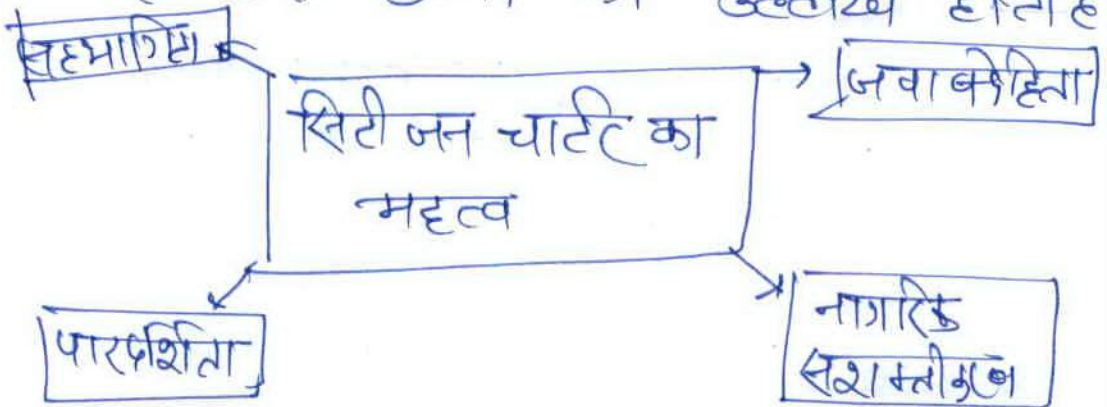 उल्लेख होता है
सहभागिता
जवाबदेहिता
सिटीजन चार्टर का
महत्व
पारदर्शिता
नागरिक
सशक्तीकरण